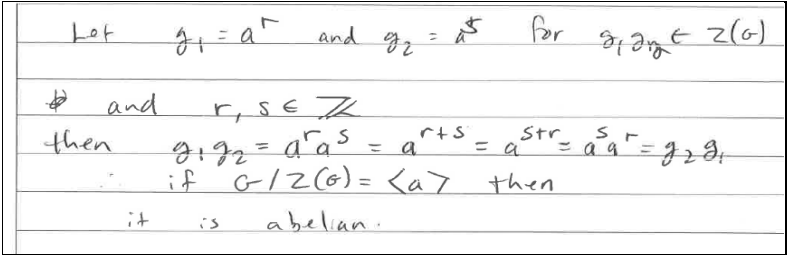 Let g₁ = aʳ and g₂ = aˢ for g₁, g₂ ∈ Z(G)
and r, s ∈ ℤ
then g₁g₂ = aʳaˢ = aʳ⁺ˢ = aˢ⁺ʳ = aˢaʳ = g₂g₁
∴ if G/Z(G) = <a> then
it is abelian.